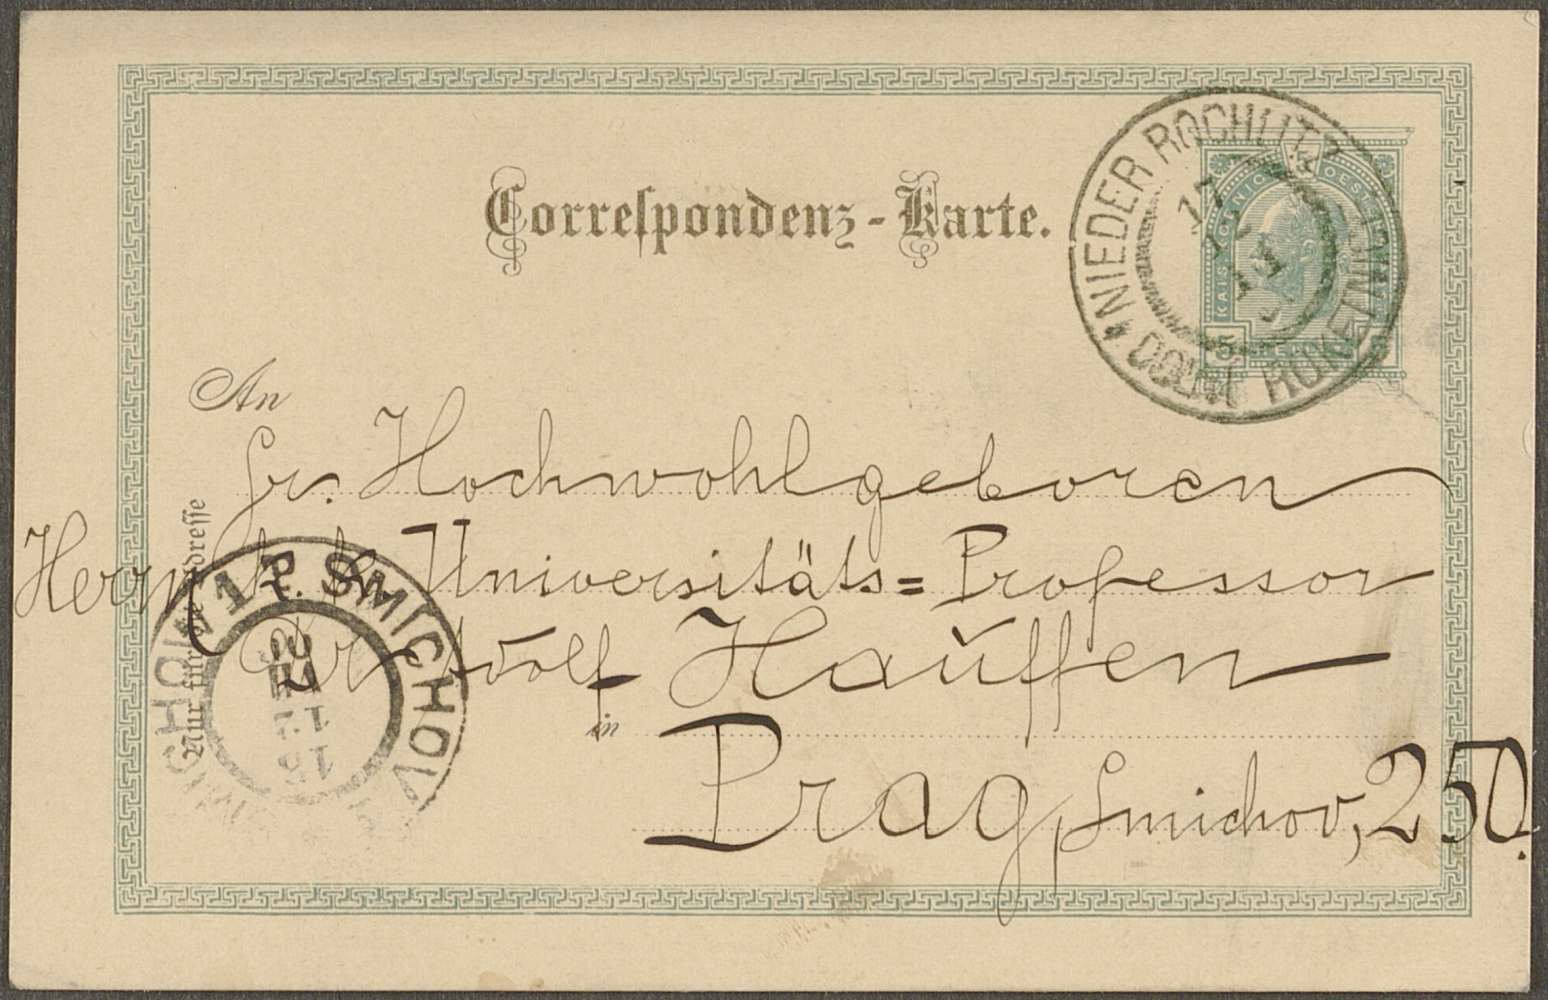 Correspondenz-Karte.
NIEDER ROCHLITZ
DOLNI ROKETNICE
17
11
5
An
Sr. Hochwohlgeboren
Herrn k. k. Universitäts=Professor
Dr Adolf Hauffen
in
Prag, Smichov, 250.
Nur für die Adresse
SMICHOV 1
SMÍCHOV 1